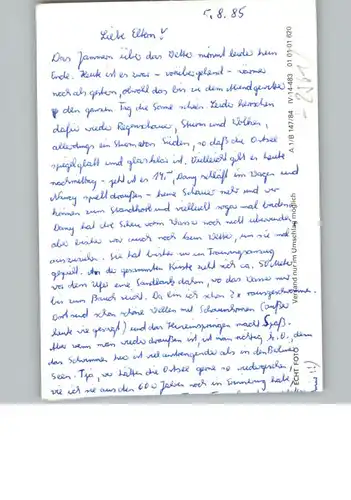 5.8.85
Liebe Eltern!
Das Jammern über das Wetter nimmt leider kein
Ende. Heute ist es zwar - vorübergehend - wärmer
noch als gestern, obwohl das bis in dem
den ganzen Tag die Sonne schien. Leider herrschen
dafür wieder Regenschauer, Sturm und Wolken,
allerdings ein Sturm aus Süden, so daß die Ostsee
spiegelglatt und glasklar ist. Vielleicht gibt es heute
nachmittag - jetzt ist es 14.00, Dany schläft im Wagen und
spielt draußen - keine Schauer mehr und wir
können zum Strandkorb und vielleicht sogar mal baden.
Dany hat die Scheu vorm Wasser noch nicht überwunden,
aber bisher war auch noch kein Wetter, um sie mal
auszuziehen. Sie hat bisher nur im Trainingsanzug
gespielt. An der gesamten Küste zieht sich ca. 50 Meter
vor dem Ufer eine Sandbank dahin, wo das Wasser nur
bis zum Bauch reicht. Da bin ich schon 2x rausgeschwommen.
Dort sind schon schöne Wellen mit Schaumkronen (außer
heute wie gesagt) und das Hineinspringen macht Spaß.
Aber wenn man wieder draußen ist, ist man richtig k.o., denn
das Schwimmen hier ist viel anstrengender als in den Berliner
Seen. Tja, wir hätten die Ostsee gerne so wiedergesehen,
wie ich sie aus den 60er Jahren noch in Erinnerung habe,
!!)
ECHT FOTO
Versand nur im Umschlag möglich
A 1/B 147/84 IV-14-483 01 01 01 620